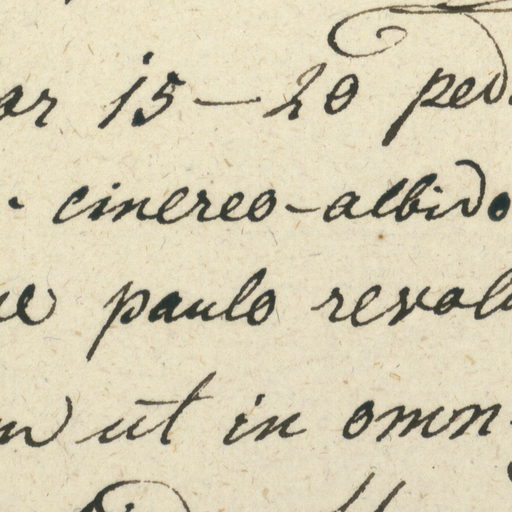 ar 15-20 ped
cinereo-albido
paulo revol
ut in omn